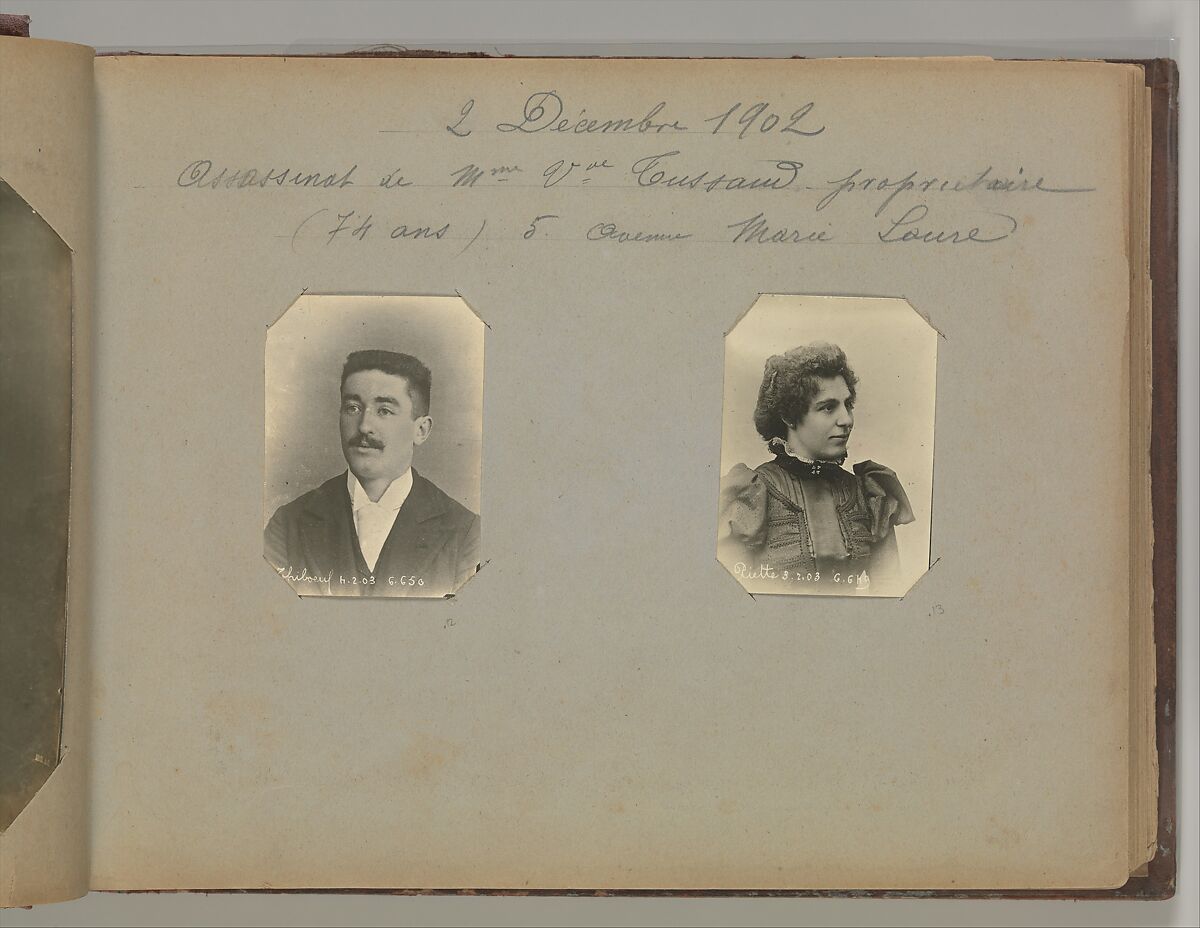 2 Décembre 1902
Assassinat de Mme Vve Tussaud propriétaire
(74 ans) 5. Avenue Marie Laure
Thiboeuf 4.2.03 G.650
Piette 3.2.03
12
13